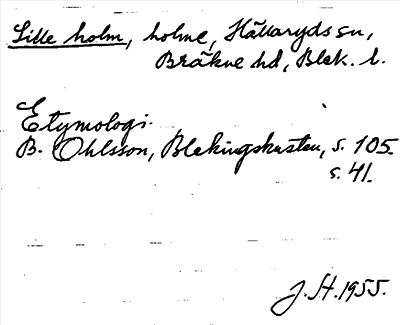 Lille holm, holme, Hällaryds sn,
Bräkne hd, Blek. l.
Etymologi.
B. Ohlsson, Blekingskusten, s. 105.
s. 41.
J. H. 1955.